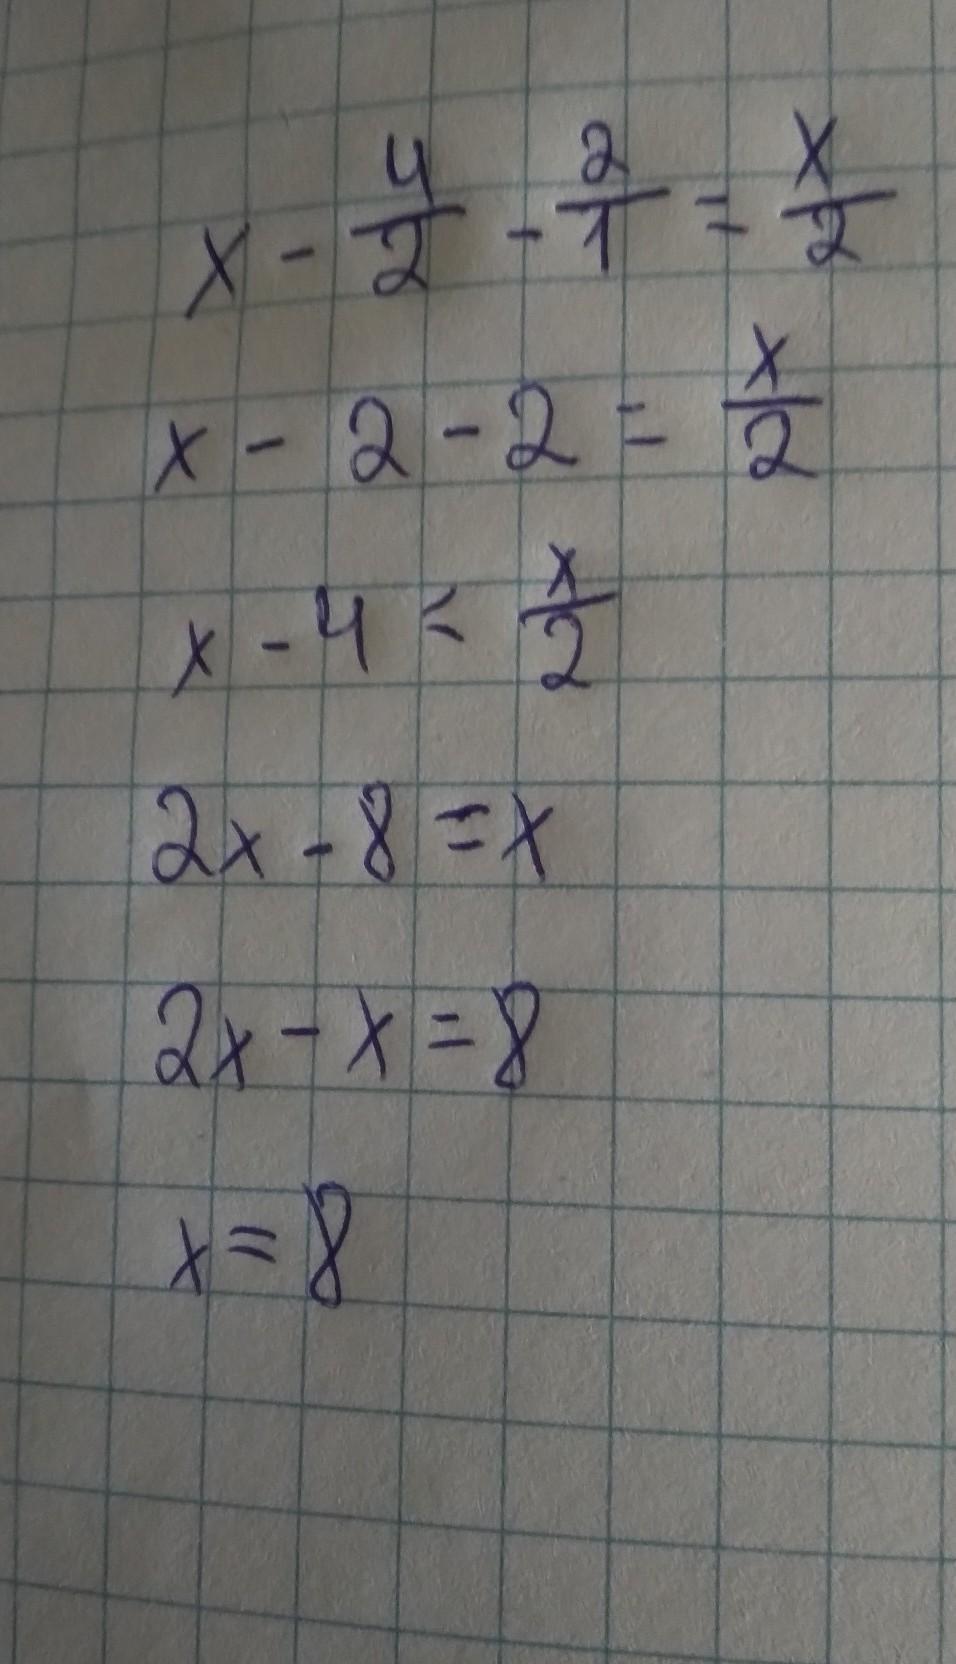 x - 4/2 - 2/1 = x/2
x - 2 - 2 = x/2
x - 4 = x/2
2x - 8 = x
2x - x = 8
x = 8